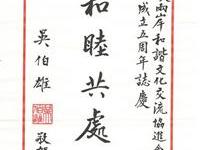 兩岸和諧文化交流協進會
成立五周年誌慶
和睦共處
吳伯雄
敬賀